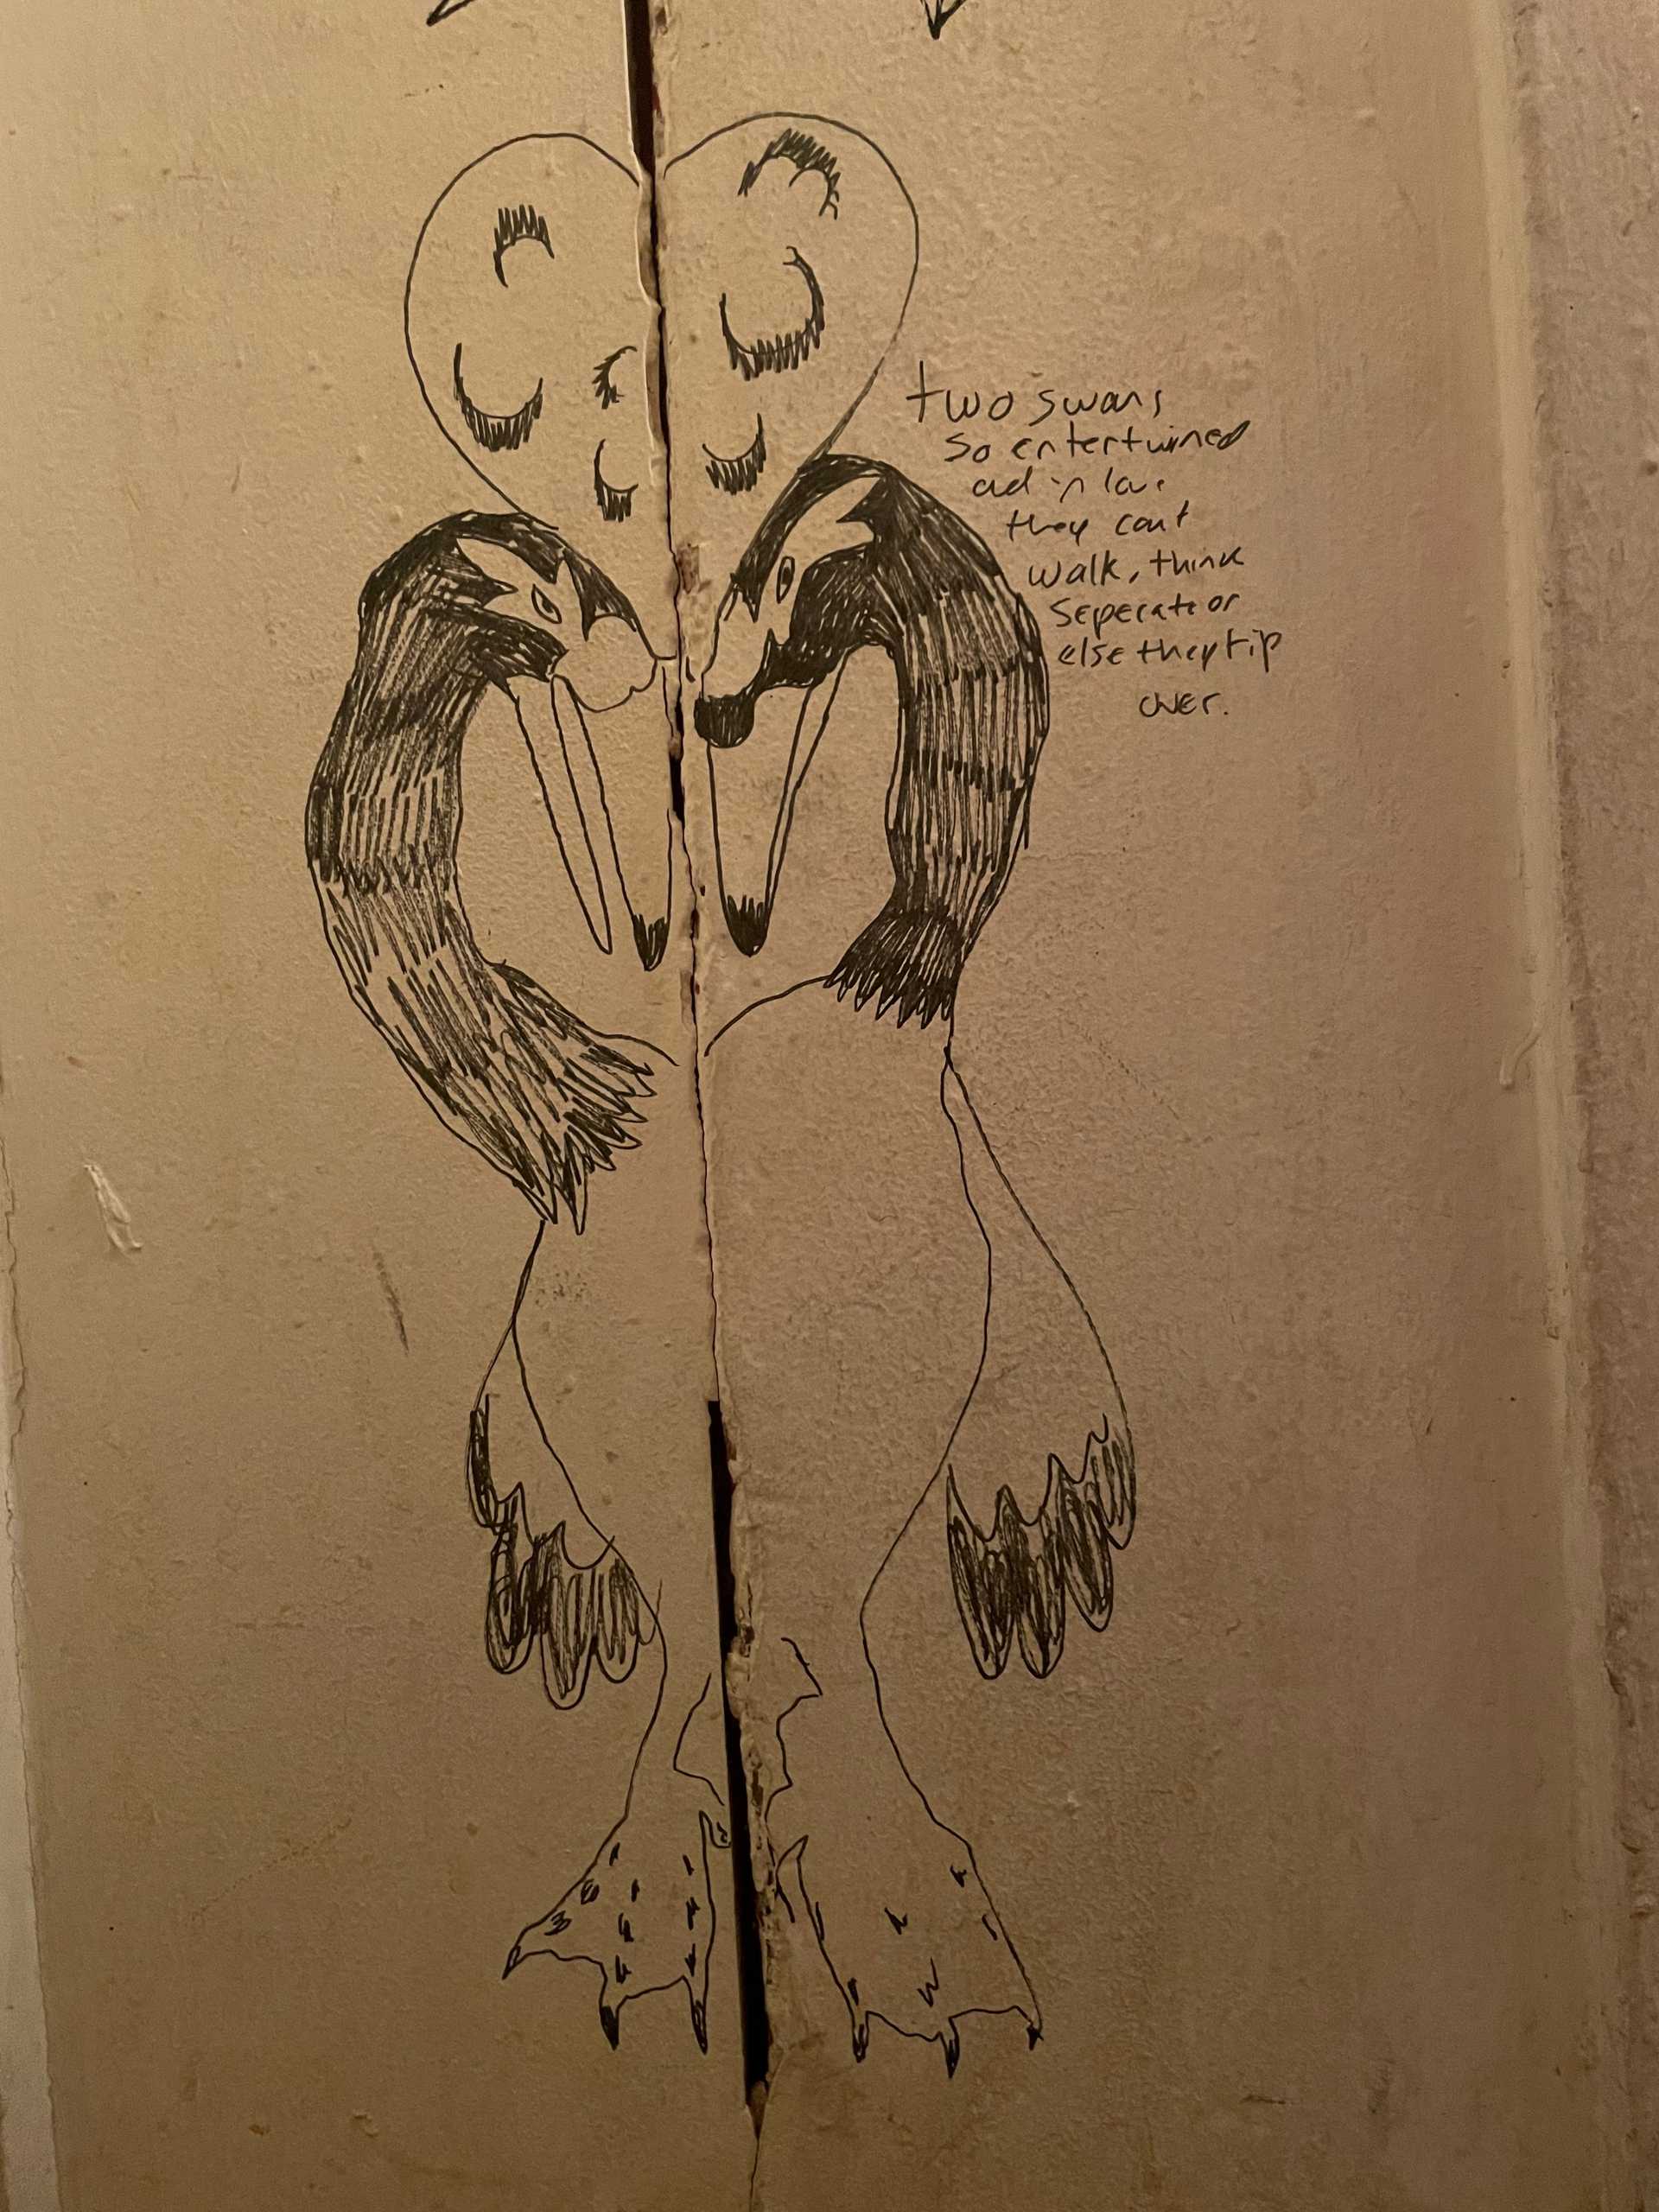 two swans
so entertwined
and in love
they cant
walk, think
seperate or
else they tip
over.